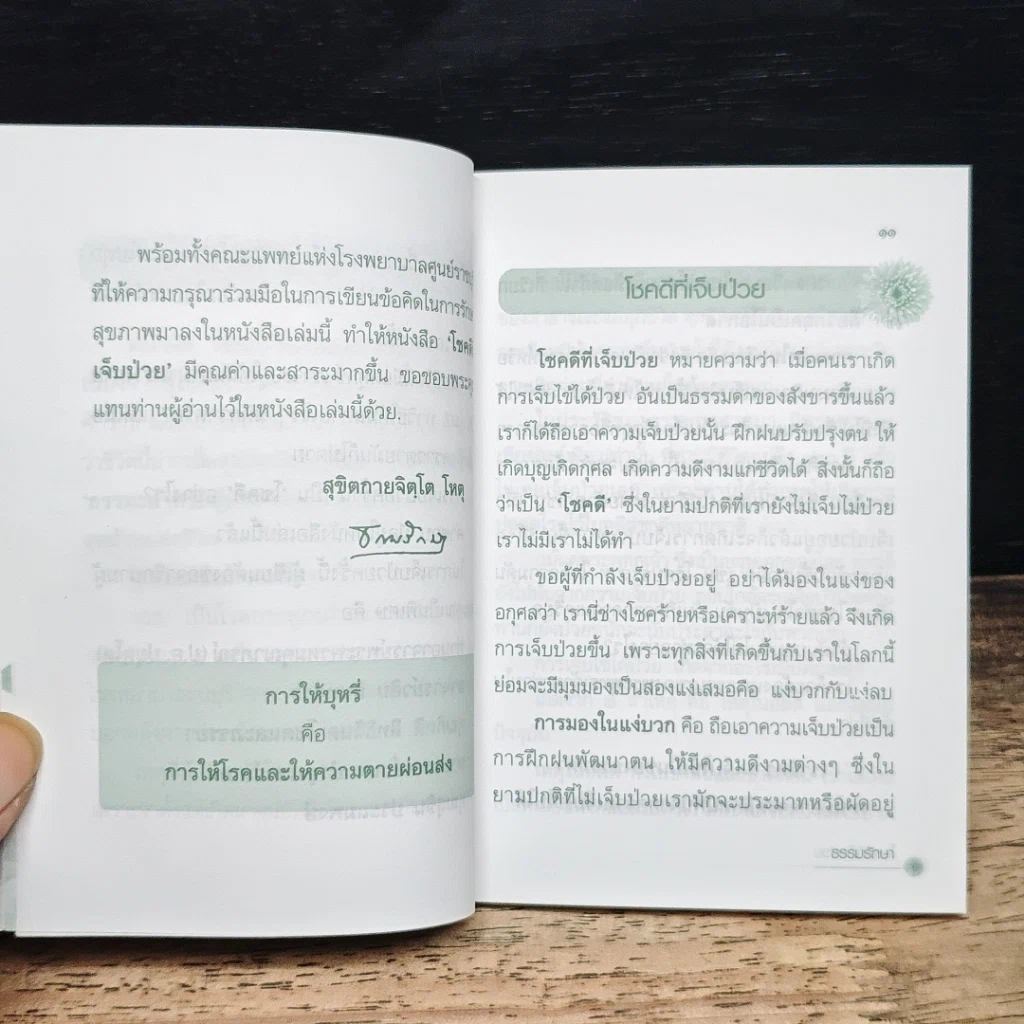 พร้อมทั้งคณะแพทย์แห่งโรงพยาบาลศูนย์
ที่ให้ความกรุณาร่วมมือในการเขียนข้อคิดในการ
สุขภาพมาลงในหนังสือเล่มนี้ ทำให้หนังสือ ‘โชคดี
เจ็บป่วย’ มีคุณค่าและสาระมากขึ้น ขอขอบพระ
แทนท่านผู้อ่านไว้ในหนังสือเล่มนี้ด้วย.
สุขิตกายจิตฺโต โหตุ
การให้บุหรี่
คือ
การให้โรคและให้ความตายผ่อนส่ง
๑๑
โชคดีที่เจ็บป่วย
โชคดีที่เจ็บป่วย หมายความว่า เมื่อคนเราเกิด
การเจ็บไข้ได้ป่วย อันเป็นธรรมดาของสังขารขึ้นแล้ว
เราก็ได้ถือเอาความเจ็บป่วยนั้น ฝึกฝนปรับปรุงตน ให้
เกิดบุญเกิดกุศล เกิดความดีงามแก่ชีวิตได้ สิ่งนั้นก็ถือ
ว่าเป็น ‘โชคดี’ ซึ่งในยามปกติที่เรายังไม่เจ็บไม่ป่วย
เราไม่มีเราไม่ได้ทำ
ขอผู้ที่กำลังเจ็บป่วยอยู่ อย่าได้มองในแง่ของ
อกุศลว่า เรานี่ช่างโชคร้ายหรือเคราะห์ร้ายแล้ว จึงเกิด
การเจ็บป่วยขึ้น เพราะทุกสิ่งที่เกิดขึ้นกับเราในโลกนี้
ย่อมจะมีมุมมองเป็นสองแง่เสมอคือ แง่บวกกับแง่ลบ
การมองในแง่บวก คือ ถือเอาความเจ็บป่วยเป็น
การฝึกฝนพัฒนาตน ให้มีความดีงามต่างๆ ซึ่งใน
ยามปกติที่ไม่เจ็บป่วยเรามักจะประมาทหรือผัดอยู่
ธรรมรักษา